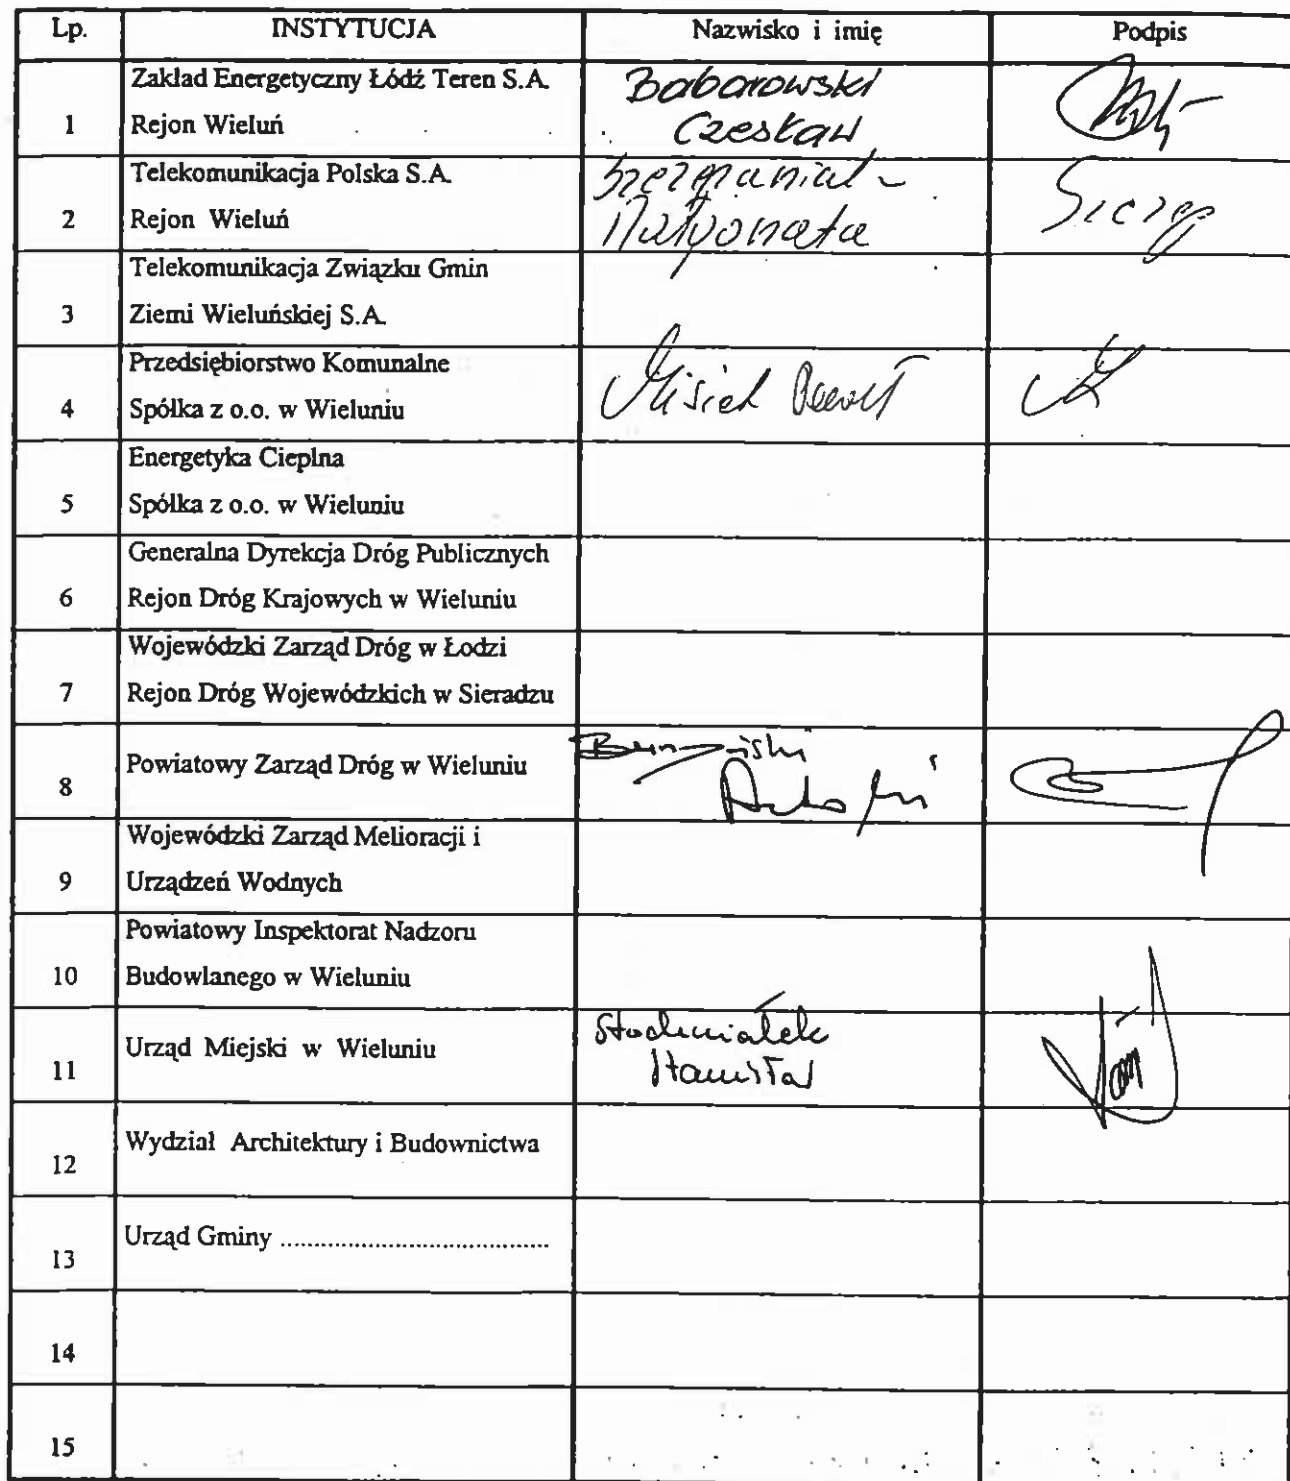 Lp. INSTYTUCJA Nazwisko i imię Podpis
Zakład Energetyczny Łódź Teren S.A. Baborowski
1 Rejon Wieluń Czesław
Telekomunikacja Polska S.A.
2 Rejon Wieluń Małgorzata
Telekomunikacja Związku Gmin
3 Ziemi Wieluńskiej S.A.
Przedsiębiorstwo Komunalne
4 Spółka z o.o. w Wieluniu
Energetyka Cieplna
5 Spółka z o.o. w Wieluniu
Generalna Dyrekcja Dróg Publicznych
6 Rejon Dróg Krajowych w Wieluniu
Wojewódzki Zarząd Dróg w Łodzi
7 Rejon Dróg Wojewódzkich w Sieradzu
8 Powiatowy Zarząd Dróg w Wieluniu
Wojewódzki Zarząd Melioracji i
9 Urządzeń Wodnych
Powiatowy Inspektorat Nadzoru
10 Budowlanego w Wieluniu
11 Urząd Miejski w Wieluniu
12 Wydział Architektury i Budownictwa
13 Urząd Gminy ......................................
14
15